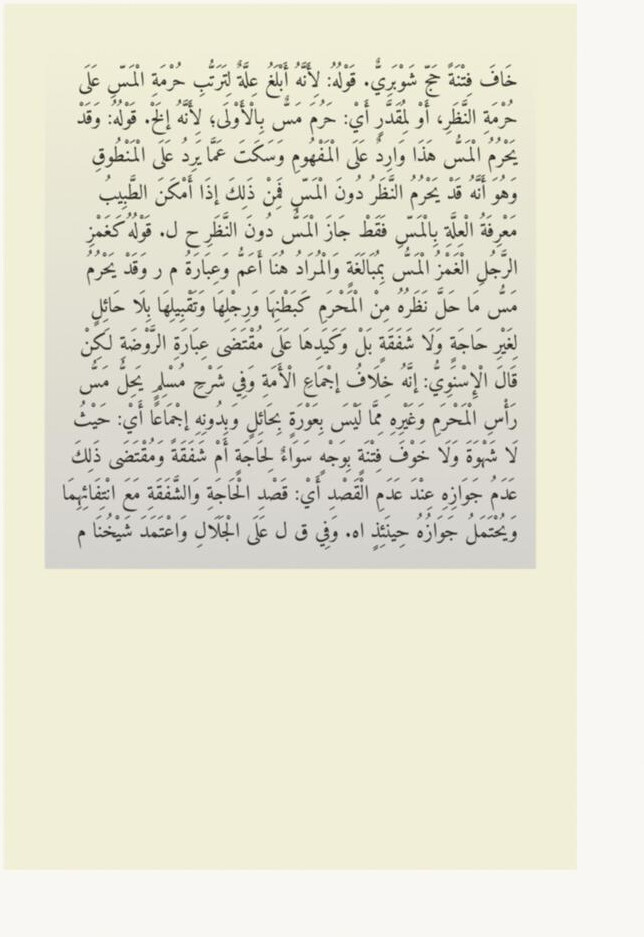 خَافَ فِتْنَةً حَجّ شَوْبَرِيٌّ. قَوْلُهُ: لِأَنَّهُ أَبْلَغُ عِلَّةٌ لِتَرَتُّبِ حُرْمَةِ الْمَسِّ عَلَى
حُرْمَةِ النَّظَرِ، أَوْ لِمُقَدَّرٍ أَيْ: حَرُمَ مَسٌّ بِالْأَوْلَى؛ لِأَنَّهُ إلَخْ. قَوْلُهُ: وَقَدْ
يَحْرُمُ الْمَسُّ هَذَا وَارِدٌ عَلَى الْمَفْهُومِ وَسَكَتَ عَمَّا يَرِدُ عَلَى الْمَنْطُوقِ
وَهُوَ أَنَّهُ قَدْ يَحْرُمُ النَّظَرُ دُونَ الْمَسِّ فَمِنْ ذَلِكَ إذَا أَمْكَنَ الطَّبِيبُ
مَعْرِفَةُ الْعِلَّةِ بِالْمَسِّ فَقَطْ جَازَ الْمَسُّ دُونَ النَّظَرِ ح ل. قَوْلُهُ كَغَمْزِ
الرَّجُلِ الْغَمْزُ الْمَسُّ بِمُبَالَغَةٍ وَالْمُرَادُ هُنَا أَعَمُّ وَعِبَارَةُ م ر وَقَدْ يَحْرُمُ
مَسُّ مَا حَلَّ نَظَرُهُ مِنْ الْمَحْرَمِ كَبَطْنِهَا وَرِجْلِهَا وَتَقْبِيلِهَا بِلَا حَائِلٍ
لِغَيْرِ حَاجَةٍ وَلَا شَفَقَةٍ بَلْ وَكَيَدِهَا عَلَى مُقْتَضَى عِبَارَةِ الرَّوْضَةِ لَكِنْ
قَالَ الْإِسْنَوِيُّ: إنَّهُ خِلَافُ إجْمَاعِ الْأُمَّةِ وَفِي شَرْحِ مُسْلِمٍ يَحِلُّ مَسُّ
رَأْسِ الْمَحْرَمِ وَغَيْرِهِ مِمَّا لَيْسَ بِعَوْرَةٍ بِحَائِلٍ وَبِدُونِهِ إجْمَاعًا أَيْ: حَيْثُ
لَا شَهْوَةَ وَلَا خَوْفَ فِتْنَةٍ بِوَجْهٍ سَوَاءٌ لِحَاجَةٍ أَمْ شَفَقَةً وَمُقْتَضَى ذَلِكَ
عَدَمُ جَوَازِهِ عِنْدَ عَدَمِ الْقَصْدِ أَيْ: قَصْدِ الْحَاجَةِ وَالشَّفَقَةِ مَعَ انْتِفَائِهِمَا
وَيُحْتَمَلُ جَوَازُهُ حِينَئِذٍ اه. وَفِي ق ل عَلَى الْجَلَالِ وَاعْتَمَدَ شَيْخُنَا م